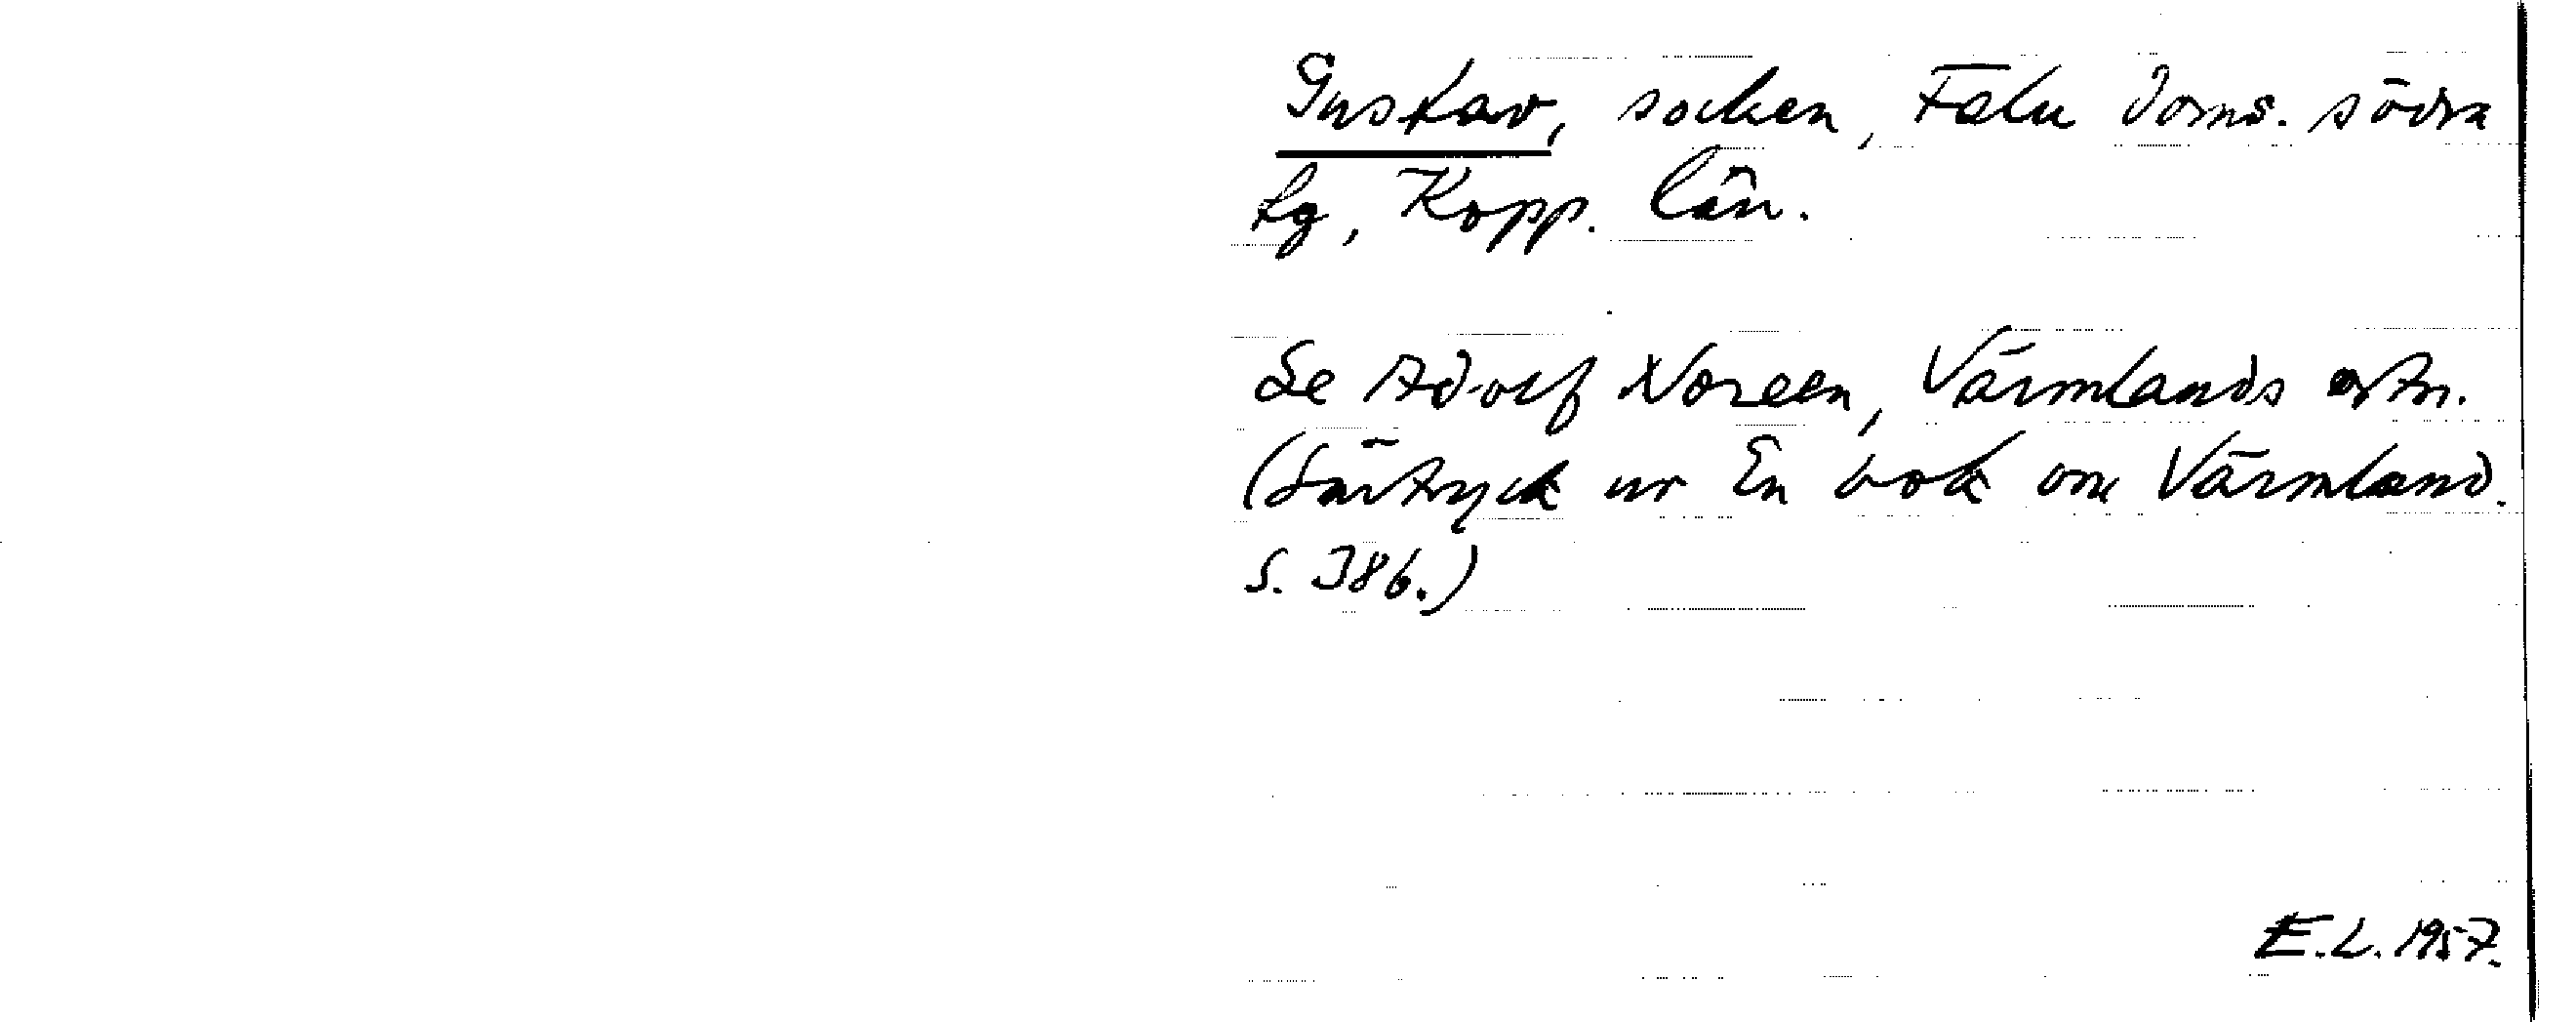 Gustav, socken, Falu doms. södra
tg, Kopp. län.
Se Adolf Noreen, Värmlands ortn.
(Särtryck ur En bok om Värmland.
S. 386.)
E.L. 1957.